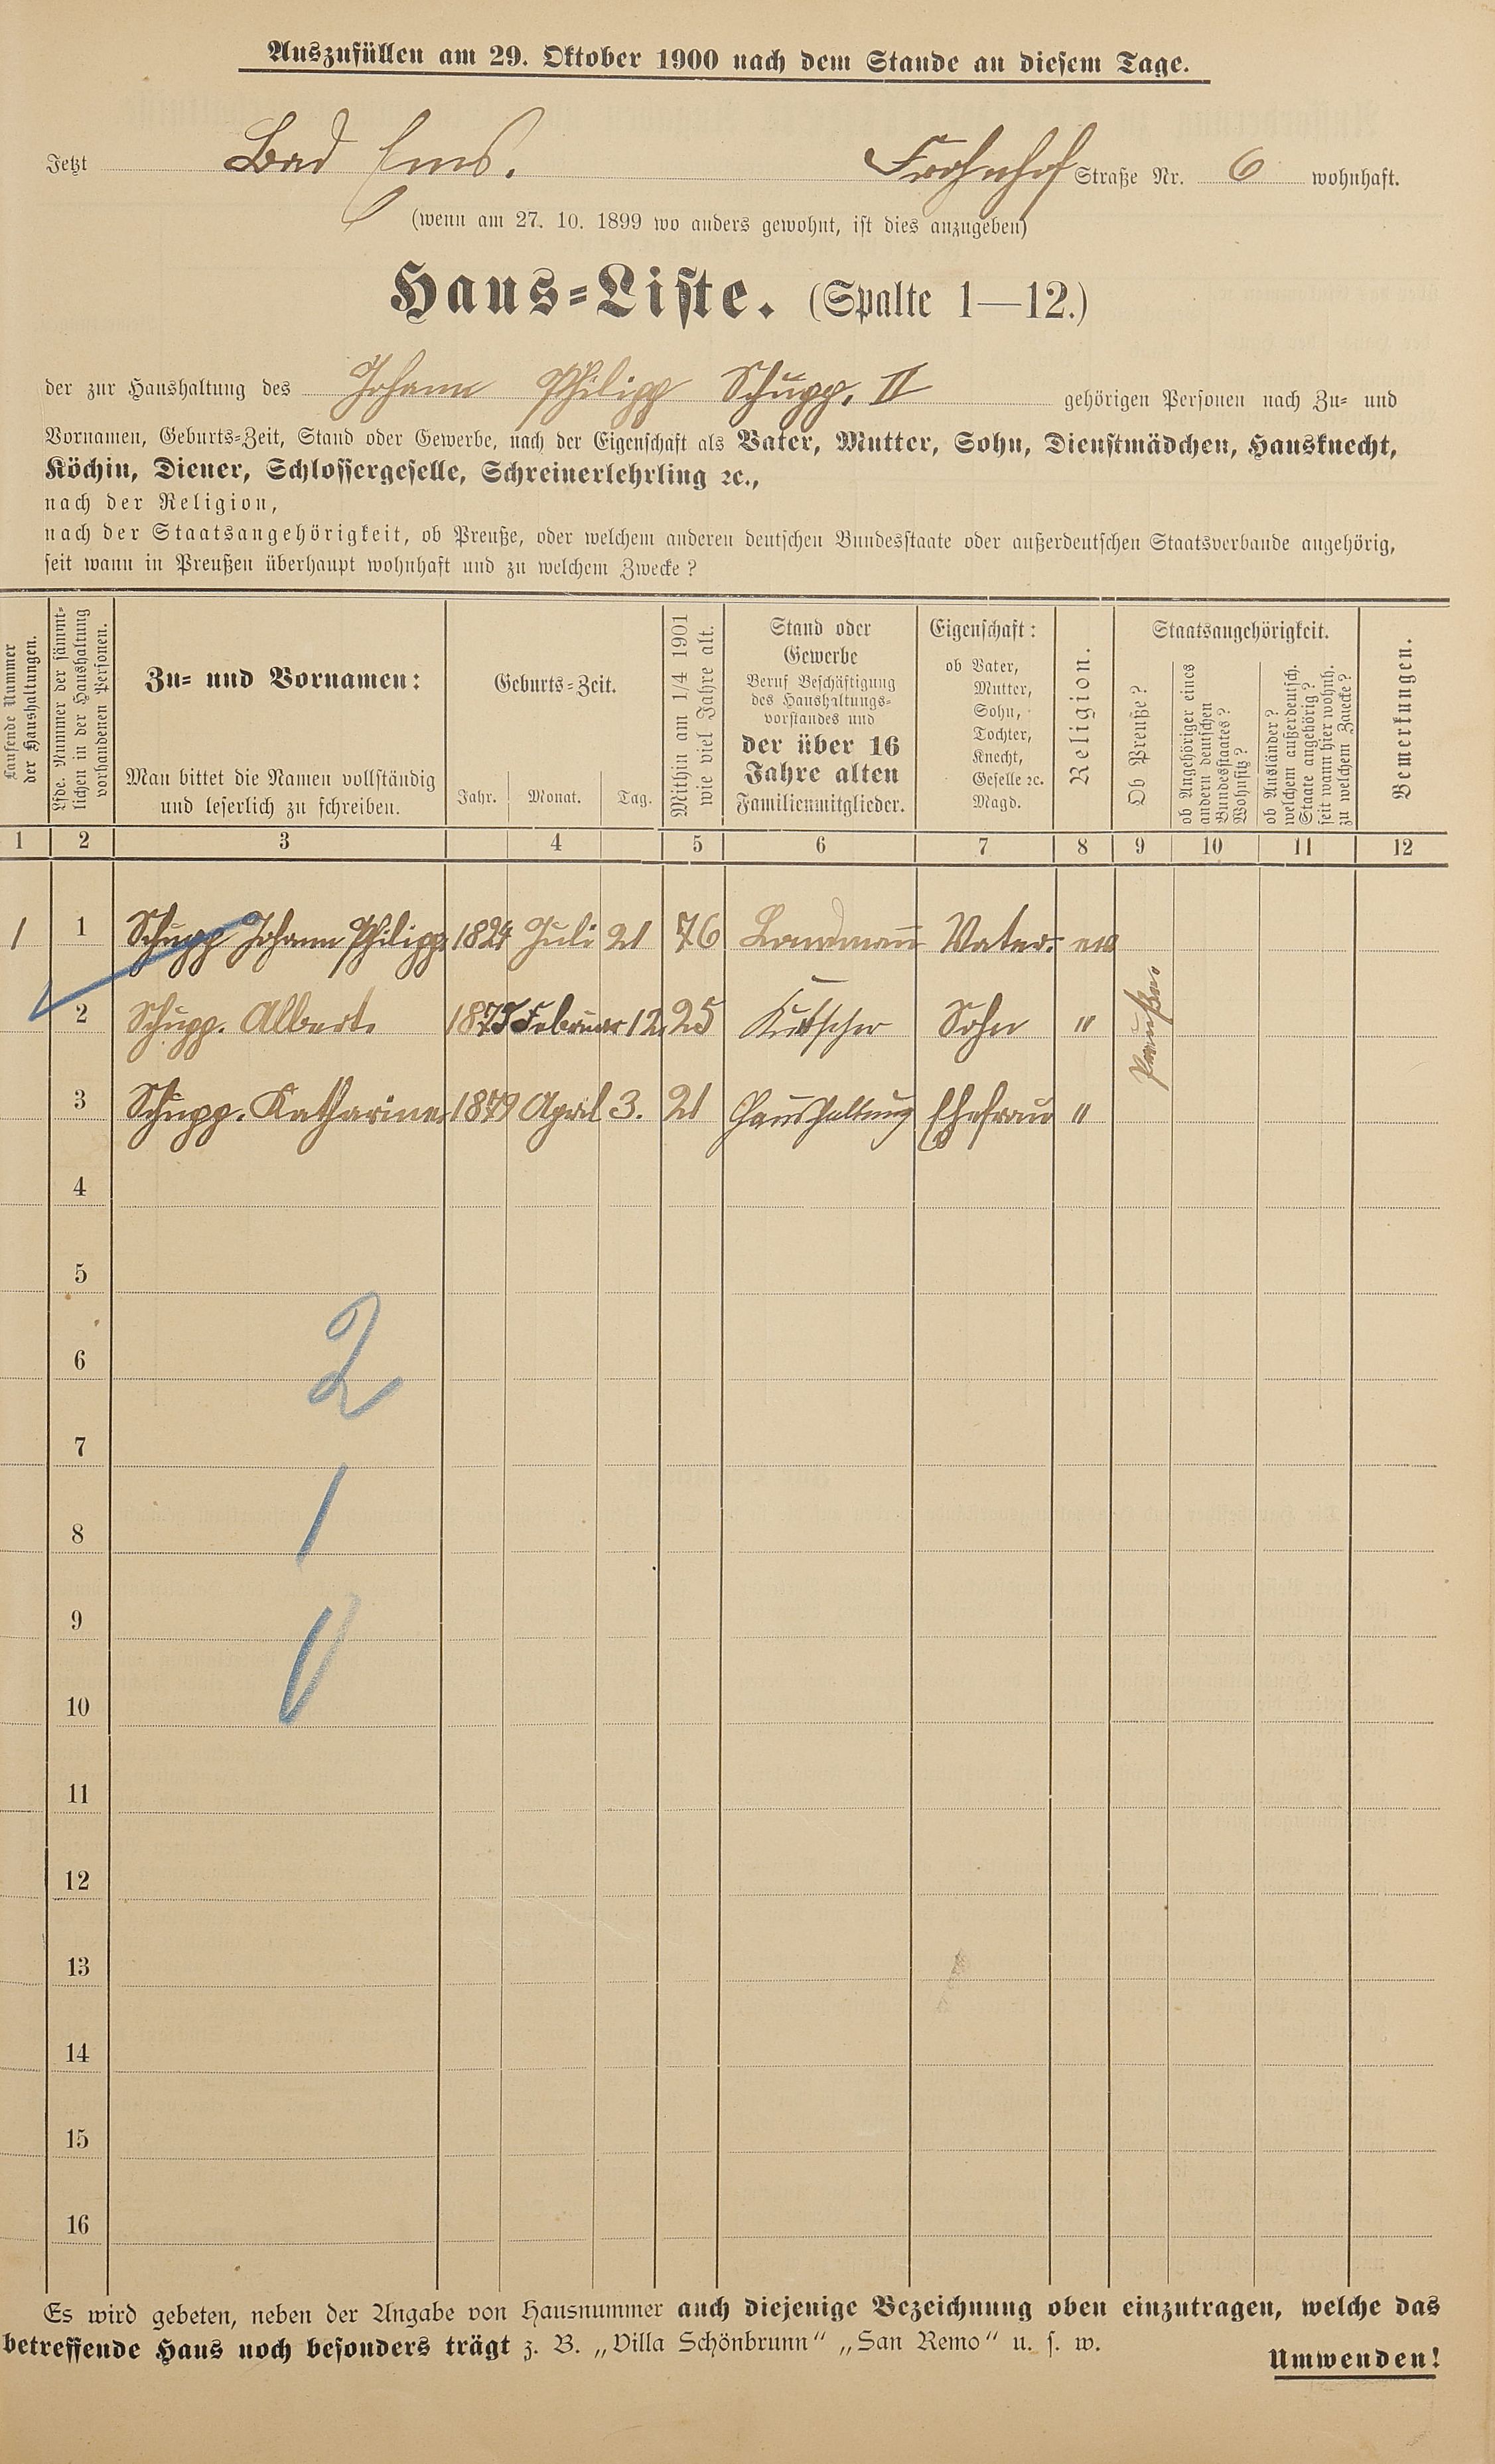 Auszufüllen am 29. Oktober 1900 nach dem Stande an diesem Tage.
Jetzt Bad Ems. Frohnhof Straße Nr. 6 wohnhaft.
(wenn am 27. 10. 1899 wo anders gewohnt, ist dies anzugeben)
Haus-Liste. (Spalte 1—12.)
der zur Haushaltung des Johann Philipp Schupp. II gehörigen Personen nach Zu- und
Vornamen, Geburts-Zeit, Stand oder Gewerbe, nach der Eigenschaft als Vater, Mutter, Sohn, Dienstmädchen, Hausknecht,
Köchin, Diener, Schlossergeselle, Schreinerlehrling ꝛc.,
nach der Religion,
nach der Staatsangehörigkeit, ob Preuße, oder welchem anderen deutschen Bundesstaate oder außerdeutschen Staatsverbande angehörig,
seit wann in Preußen überhaupt wohnhaft und zu welchem Zwecke?
Laufende Nummer
der Haushaltungen.
Lfde. Nummer der sämmt-
lichen in der Haushaltung
vorhandenen Personen.
Zu- und Vornamen:
Man bittet die Namen vollständig
und leserlich zu schreiben.
Geburts-Zeit.
Jahr. Monat. Tag.
Mithin am 1/4 1901
wie viel Jahre alt.
Stand oder
Gewerbe
Beruf Beschäftigung
des Haushaltungs-
vorstandes und
der über 16
Jahre alten
Familienmitglieder.
Eigenschaft:
ob Vater,
Mutter,
Sohn,
Tochter,
Knecht,
Geselle ꝛc.
Magd.
Religion.
Staatsangehörigkeit.
Ob Preuße?
ob Angehöriger eines
andern deutschen
Bundesstaates?
Wohnsitz?
ob Ausländer?
welchem außerdeutsch.
Staate angehörig?
seit wann hier wohnh.
zu welchem Zwecke?
Bemerkungen.
1 2 3 4 5 6 7 8 9 10 11 12
1 1 Schupp Johann Philipp 1824 Juli 21 76 Landmann Vater ev
2 Schupp. Albert. 1875 Februar 12. 25 Kutscher Sohn "
Preuße.
3 Schupp. Katharine. 1879 April 3. 21 Haushaltung Ehefrau "
4
5
6
2
7
1
8
9
10
11
12
13
14
15
16
Es wird gebeten, neben der Angabe von Hausnummer auch diejenige Bezeichnung oben einzutragen, welche das
betreffende Haus noch besonders trägt z. B. „Villa Schönbrunn“ „San Remo“ u. s. w.
Umwenden!